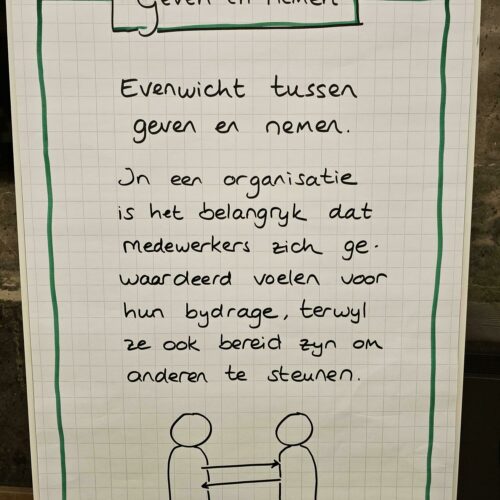 Geven en nemen
Evenwicht tussen
geven en nemen.
In een organisatie
is het belangryk dat
medewerkers zich ge-
waardeerd voelen voor
hun bydrage, terwyl
ze ook bereid zyn om
anderen te steunen.